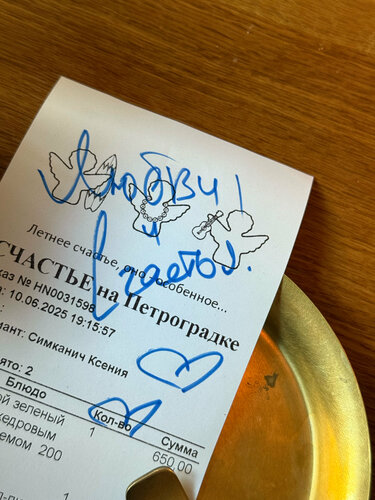 Любви!
и
Счастья!
Летнее счастье, оно особенное...
СЧАСТЬЕ на Петроградке
каз № HN0031598
а: 10.06.2025 19:15:57
:
иант: Симканич Ксения
нято: 2
Блюдо Кол-во Сумма
ой зеленый 1 650,00
кедровым
емом 200
1